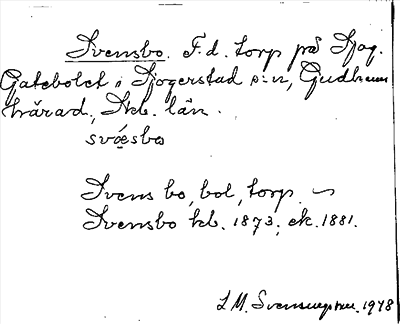 Svensbo. F.d. torp på Sjog.
Gatebolet i Sjogerstad s:n, Gudhems
härad, Skb. län.
svǽsbo
Svens bo, bol, torp ~
Svensbo kb. 1873, ek. 1881.
L.M. Svensungsson 1978